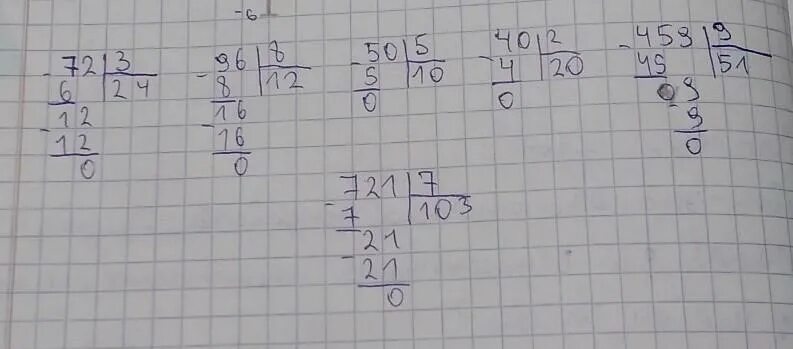 -6
- 72 | 3
6 | 24
- 12
12
0
- 96 | 8
8 | 12
- 16
16
0
- 50 | 5
5 | 10
0
- 40 | 2
4 | 20
0
- 459 | 9
45 | 51
- 09
9
0
- 721 | 7
7 | 103
- 21
21
0